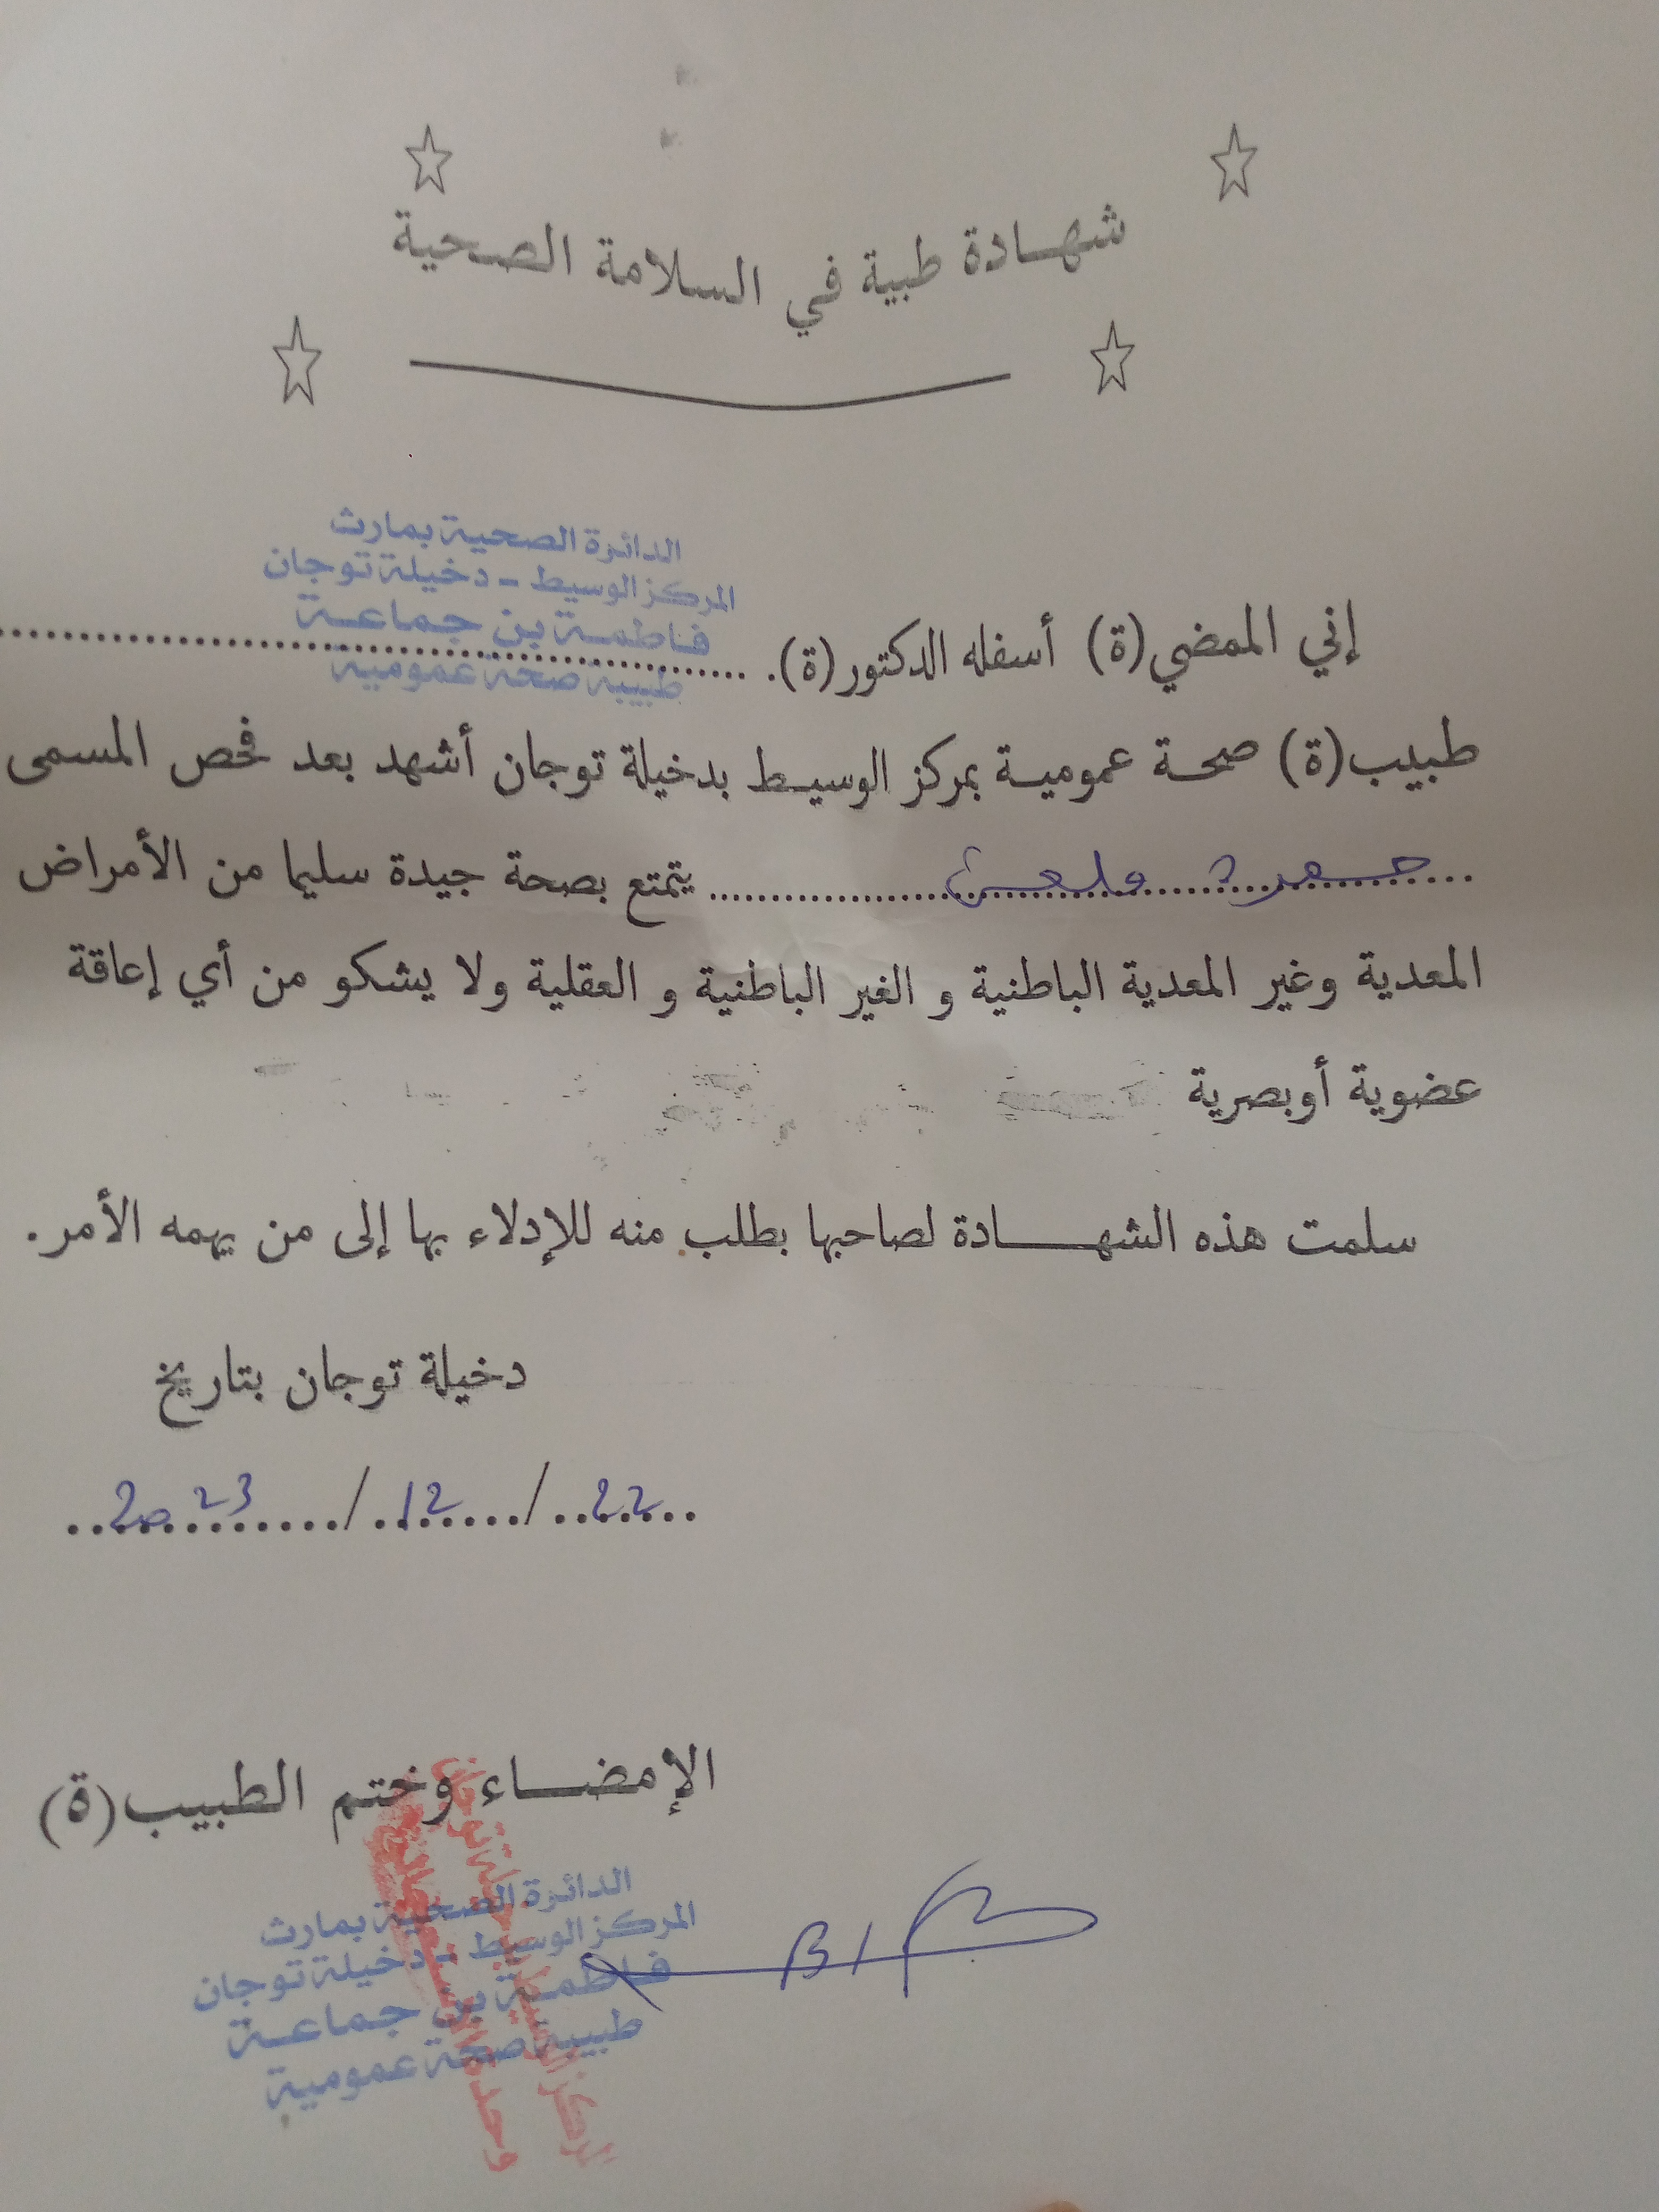 شهــادة طبية في السلامة الصحية
الدائرة الصحية بمارث
المركز الوسيط - دخيلة توجان
فاطمـة بن جماعـة
طبيبة صحة عمومية
إني الممضي(ة) أسفله الدكتور(ة).
طبيب(ة) صحة عمومية بمركز الوسيط بدخيلة توجان أشهد بعد فحص المسمى
يتمتع بصحة جيدة سليما من الأمراض
المعدية وغير المعدية الباطنية و الغير الباطنية و العقلية ولا يشكو من أي إعاقة
عضوية أوبصرية
سلمت هذه الشهــــادة لصاحبها بطلب منه للإدلاء بها إلى من يهمه الأمر.
دخيلة توجان بتاريخ
22 / 12 / 2023
الإمضــاء وختم الطبيب(ة)
الدائرة الصحية بمارث
المركز الوسيط - دخيلة توجان
فاطمـة بن جماعـة
طبيبة صحة عمومية